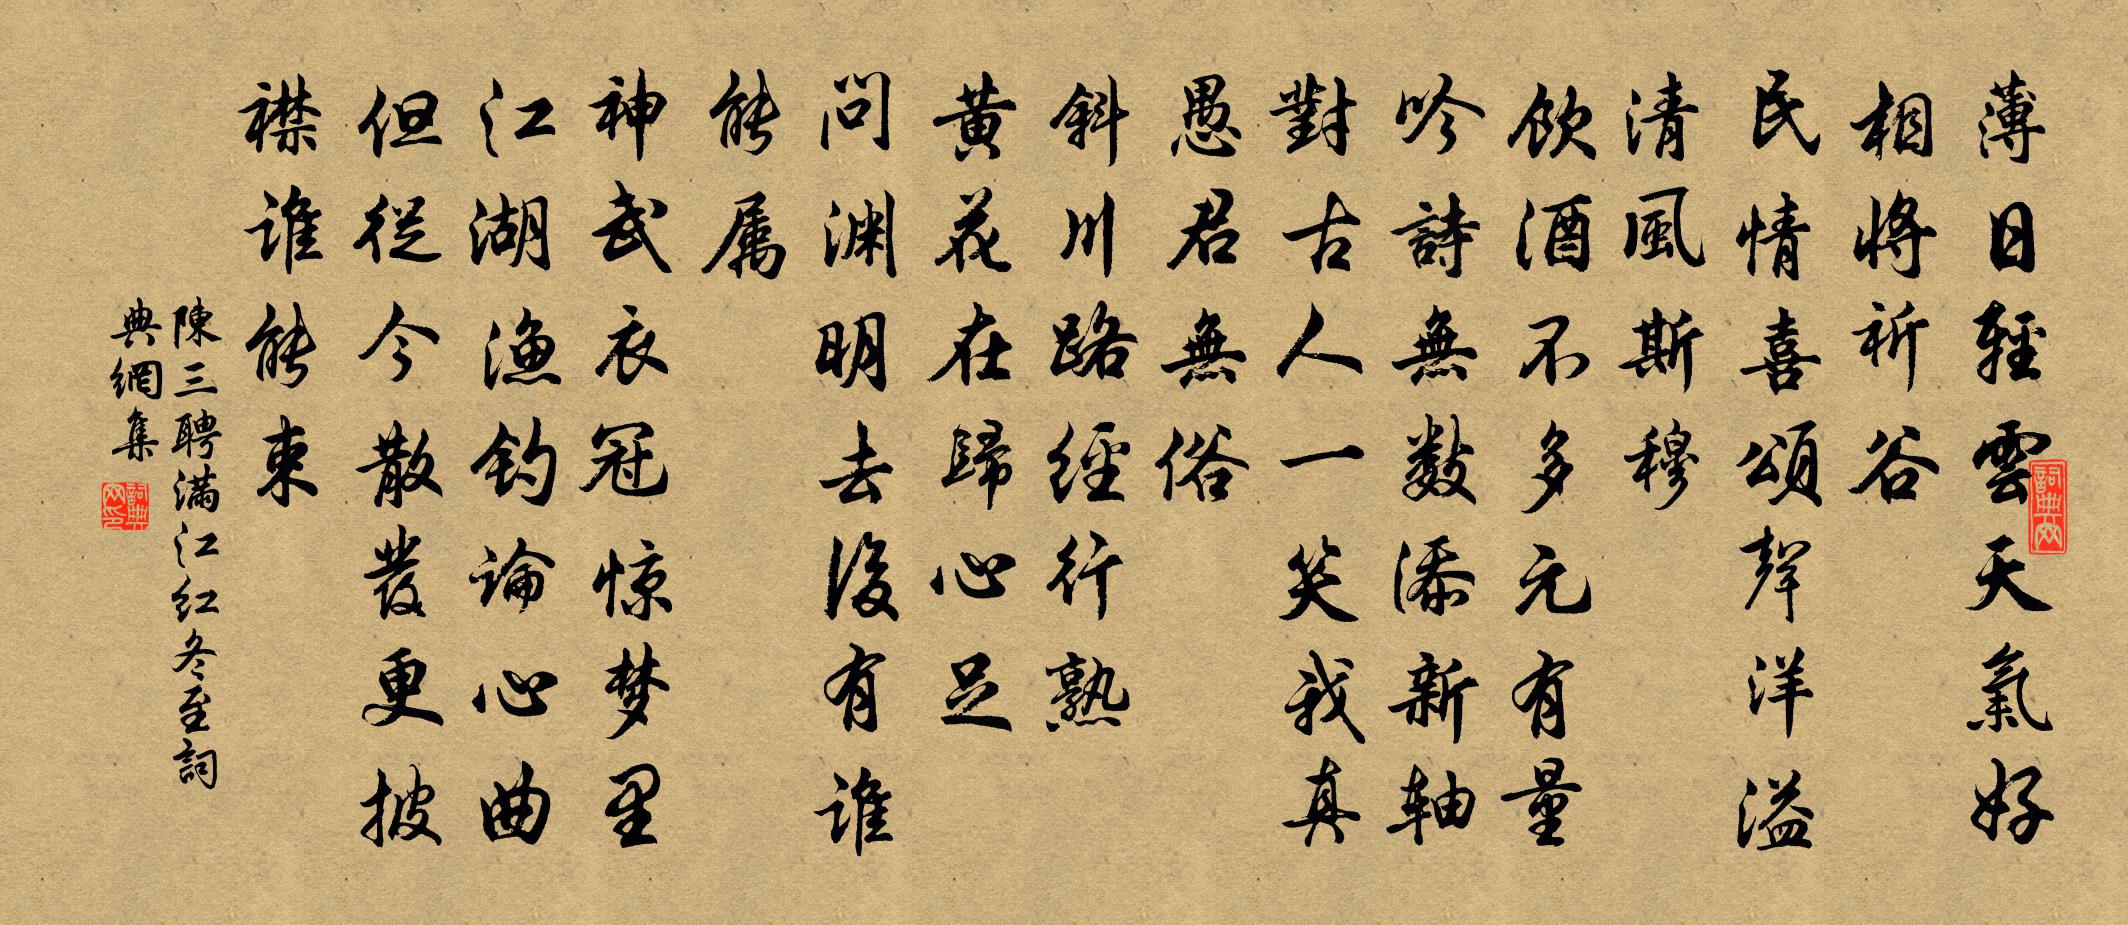 薄日輕雲天氣好
相將祈谷
民情喜頌聲洋溢
清風斯穆
飲酒不多元有量
吟詩無數添新軸
對古人一笑我真
愚君無俗
斜川路經行熟
黃花在歸心足
问渊明去後有谁
能属
神武衣冠惊梦里
江湖漁钓論心曲
但從今散發更披
襟谁能束
陳三聘满江红冬至詞
典網集
詞典网
詞典网印